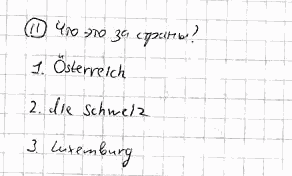 11 Что это за страны?
1. Österreich
2. die Schweiz
3. Luxemburg